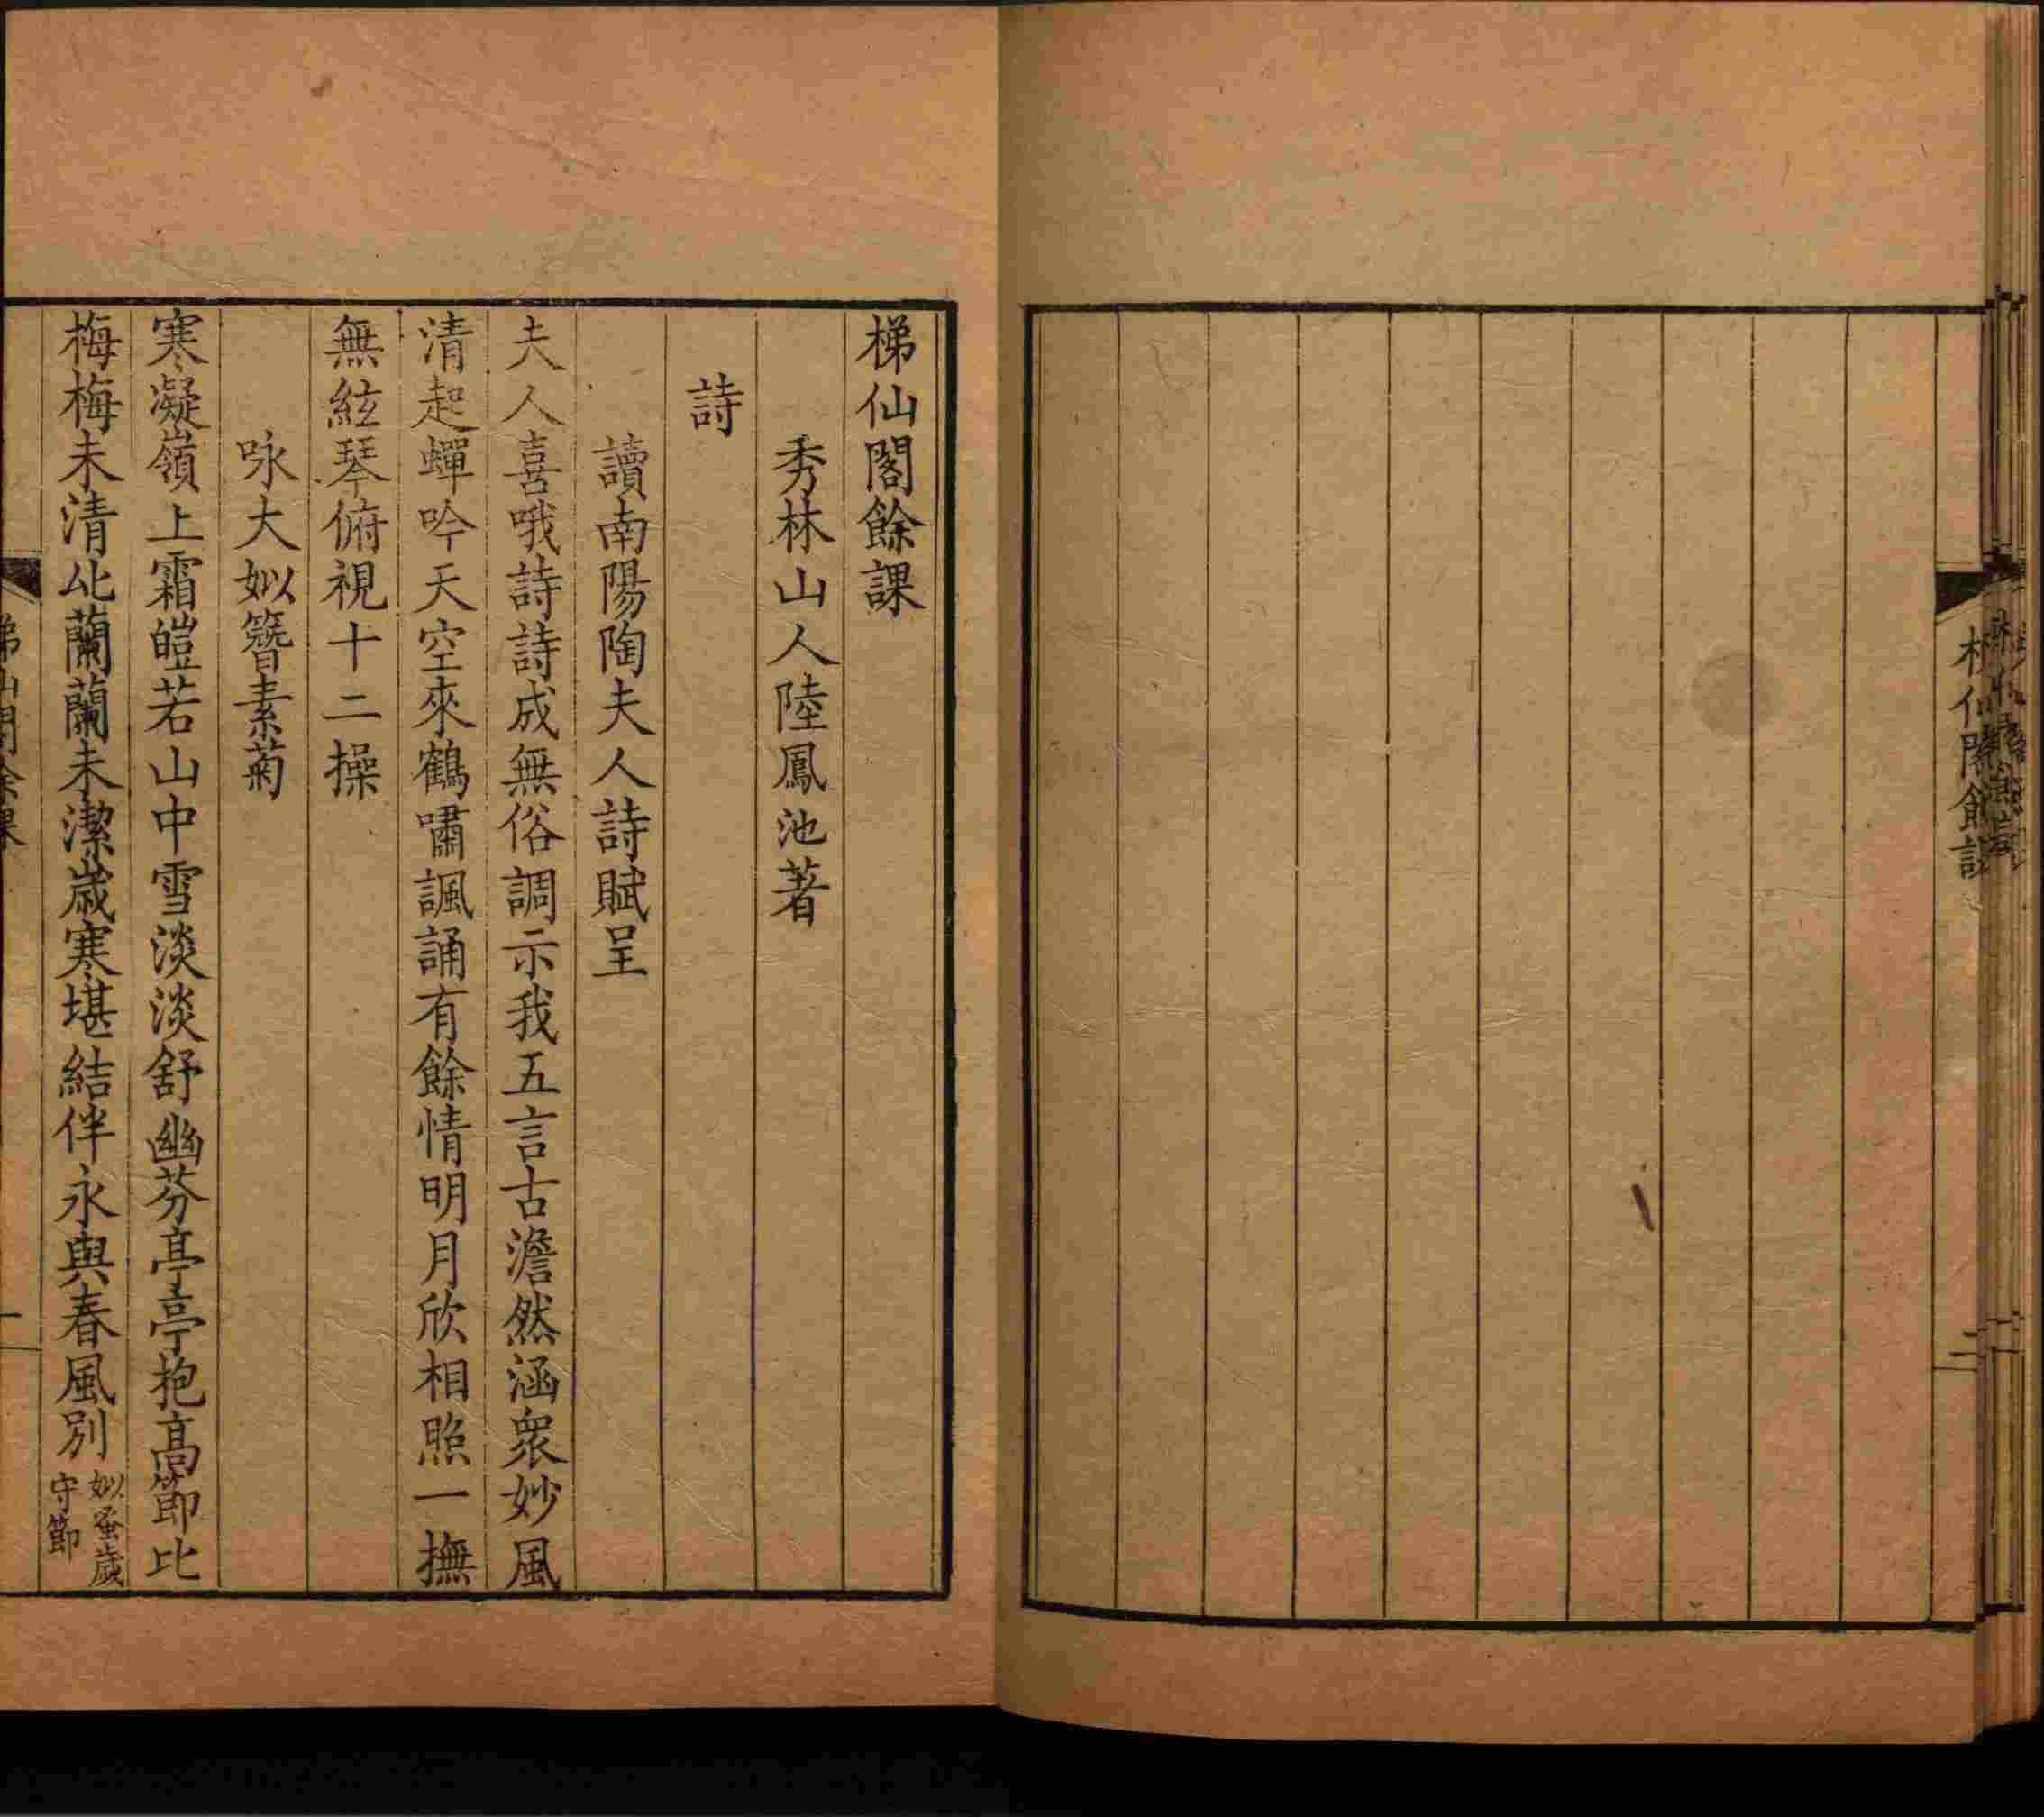 梯仙閣餘課
二
梯仙閣餘課
秀林山人陸鳳池著
詩
讀南陽陶夫人詩賦呈
夫人喜哦詩詩成無俗調示我五言古澹然涵衆妙風
清起蟬吟天空來鶴嘯諷誦有餘情明月欣相照一撫
無絃琴俯視十二操
咏大姒簪素菊
寒凝嶺上霜皚若山中雪淡淡舒幽芬亭亭抱高節比
梅梅未清比蘭蘭未潔歲寒堪結伴永與春風別
姒蚤歲
守節
梯仙閣餘課
一